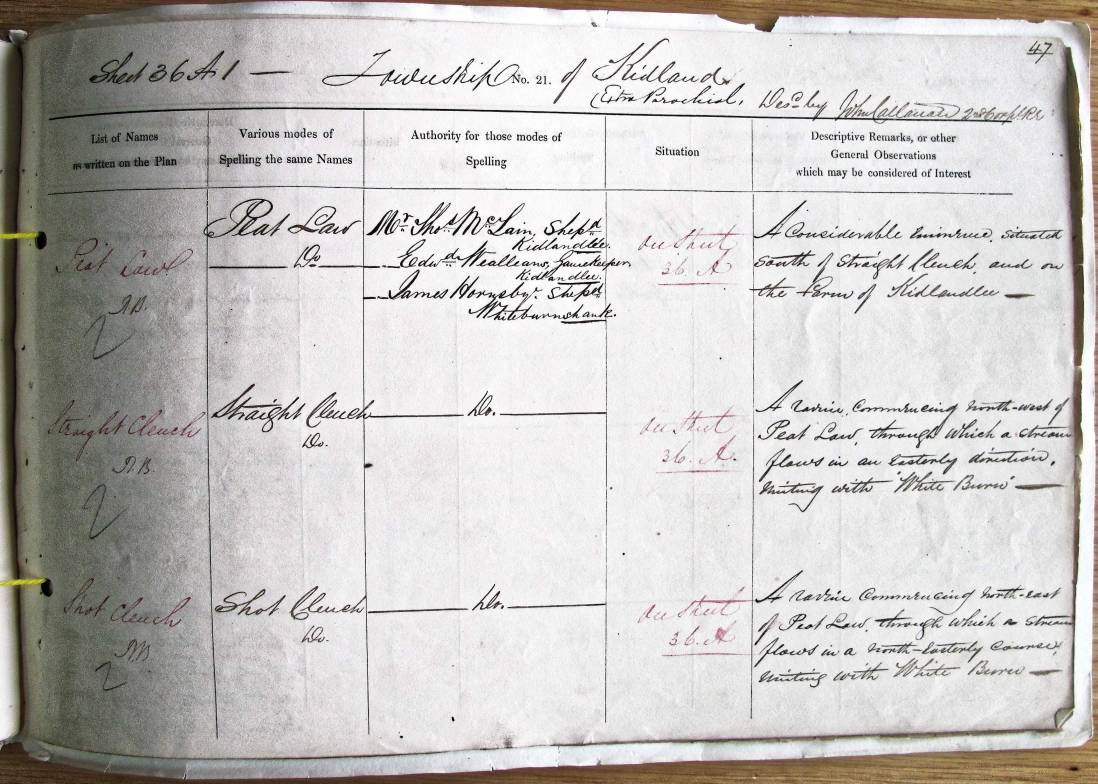 47
Sheet 36 A 1 — Township No. 21. of Kidland
(Extra Parochial. Desd by John Callanan 2nd Corpl RE
List of Names
as written on the Plan
Various modes of
Spelling the same Names
Authority for those modes of
Spelling
Situation
Descriptive Remarks, or other
General Observations
which may be considered of Interest
Peat Law
Peat Law
Do
Mr. Thos. McLain, Shepd
Kidlandlee.
Edwd. Wealleans, Gamekeeper
Kidlandlee.
James Hornsby. Shepd
Whiteburnshank.
on Sheet
36. A
A Considerable Eminence, situated
South of Straight Cleuch, and on
the Farm of Kidlandlee —
Straight Cleuch
Straight Cleuch
Do.
Do.
on Sheet
36. A.
A ravine, Commencing north-west of
Peat Law, through which a stream
flows in an Easterly direction,
uniting with "White Burn" —
Shot Cleuch
Shot Cleuch
Do.
Do.
on Sheet
36. A
A ravine Commencing north-east
of Peat Law, through which a stream
flows in a north-Easterly Course,
uniting with White Burn —